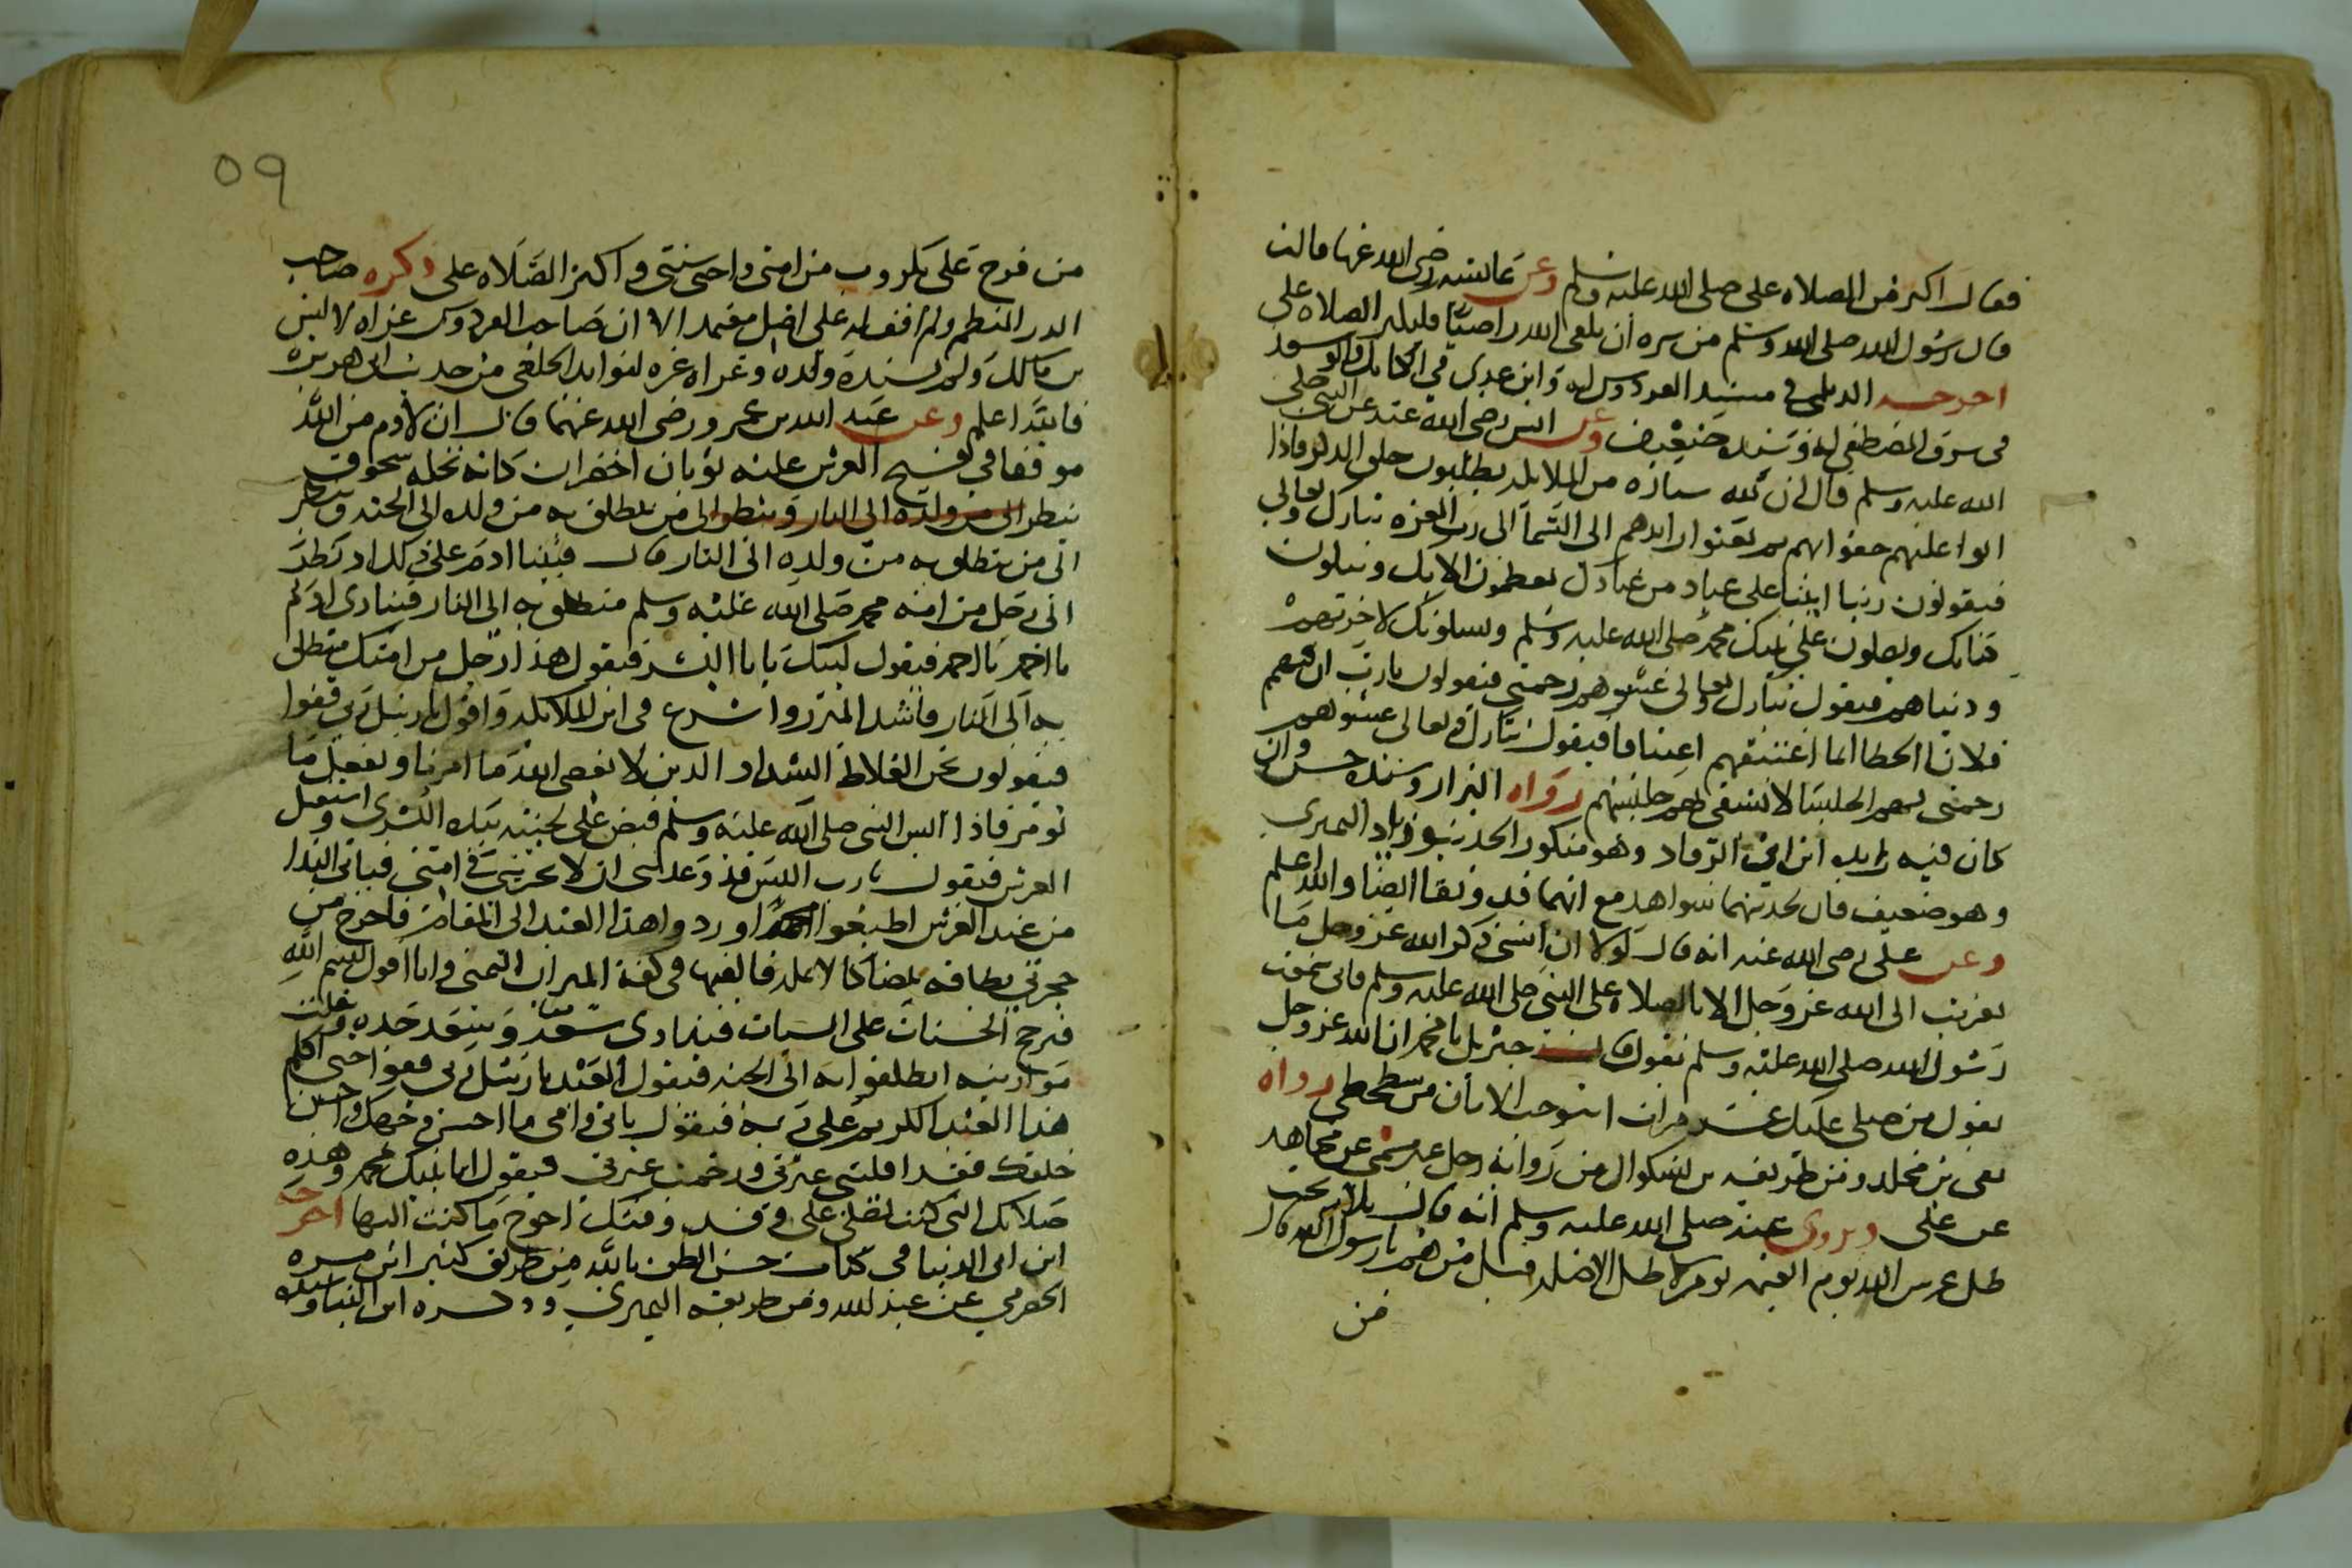 فقال اكثر من الصلاه علي صلى الله عليه وسلم وعن عائشه رضي الله عنها قالت
قال رسول الله صلى الله وسلم من سره ان يلقى الله راضيا فليكثر الصلاه علي
اخرجه الديلمي في مسند الفردوس له وابن عدي في الكامل وابو سعد
في شرف المصطفى له وسنده ضعيف وعن انس رضي الله عنه عن النبي صلى
الله عليه وسلم قال ان لله سياره من الملائكه يطلبون حلق الذكر فاذا
اتوا عليهم حفوا بهم ثم بعثوا رايدهم الى السما الى رب العزه تبارك وتعالى
فيقولون ربنا اتينا على عباد من عبادك يعظمون الايك ويتلون
كتابك ويصلون على نبيك محمد صلى الله عليه وسلم ويسلونك لاخرتهم
ودنياهم فيقول تبارك وتعالى غشوهم رحمتي فيقولون يارب ان فيهم
فلانا الخطا انما اعتنقهم اعتناقا فيقول تبارك وتعالى غشوهم
رحمتي فهم الجلسا لا يشقى بهم جليسهم رواه البزار وسنده حسن وان
كان فيه زايده ابن ابي الرقاد وهو منكور الحديث وزياد النميري
وهو ضعيف فان لحديثهما شواهد مع انهما قد وثقا ايضا والله اعلم
وعن علي رضي الله عنه انه قال لولا ان انسى ذكر الله عز وجل ما
تقربت الى الله عز وجل الا بالصلاه على النبي صلى الله عليه وسلم فاني سمعت
رسول الله صلى الله عليه وسلم يقول قال جبريل يا محمد ان الله عز وجل
يقول من صلى عليك عشر مرات استوجب الامان من سخطي رواه
بقي بن مخلد ومن طريقه بن بشكوال من روايه رجل غير مسمى عن مجاهد
عن علي ويروى عنه صلى الله عليه وسلم انه قال ثلاثه تحت
ظل عرش الله يوم القيمه يوم لا ظل الا ظله قيل من هم يارسول الله قال
من
٥٩
من فرج على مكروب من امتي واحيى سنتي واكثر الصلاه علي ذكره صاحب
الدر المنظم ولم اقف له على اصل معتمد الا ان صاحب الفردوس عزاه لانس
بن مالك ولم يسنده ولده وعزاه غيره لفوايد الخلعي من حديث ابي هريره
فالله اعلم وعن عبد الله بن عمرو رضي الله عنهما قال ان لادم من الله
موقفا في فسح العرش عليه ثوبان اخضران كانه نخله سحوق
ينظر الى من ولده الى النار وينظر الى من ينطلق به من ولده الى الجنه وينظر
الى من ينطلق به من ولده الى النار قال فبينا ادم على ذلك اذ نظر
الى رجل من امه محمد صلى الله عليه وسلم منطلق به الى النار فينادي ادم
يا احمد يا احمد فيقول لبيك يا ابا البشر فيقول هذا رجل من امتك منطلق
به الى النار فاشد المئزر واسرع في اثر الملائكه واقول يا رسل ربي قفوا
فيقولون نحن الغلاظ الشداد الذين لا نعصي الله ما امرنا ونفعل ما
نومر فاذا ايس النبي صلى الله عليه وسلم قبض على لحيته بيده اليسرى واستقبل
العرش فيقول يارب اليس قد وعدتني ان لا تخزيني في امتي فياتي الندا
من عند العرش اطيعوا محمدا وردوا هذا العبد الى المقام فاخرج من
حجزتي بطاقه بيضا كالانمله فالقيها في كفه الميزان اليمنى وانا اقول بسم الله
فترجح الحسنات على السيات فينادى سعد وسعد جده وثقلت
موازينه انطلقوا به الى الجنه فيقول العبد يا رسل ربي قفوا حتى اكلم
هذا العبد الكريم على ربه فيقول بابي وامي ما احسن وجهك واحسن
خلقك فقد اقلتني عثرتي ورحمت عبرتي فيقول انا نبيك محمد وهذه
صلاتك التي كنت تصلي علي وقد وفتك احوج ما كنت اليها اخرجه
ابن ابي الدنيا في كتاب حسن الظن بالله من طريق كثير ابن مره
الحضرمي عن عبد لله ومن طريقه النميري وذكره ابن البنا